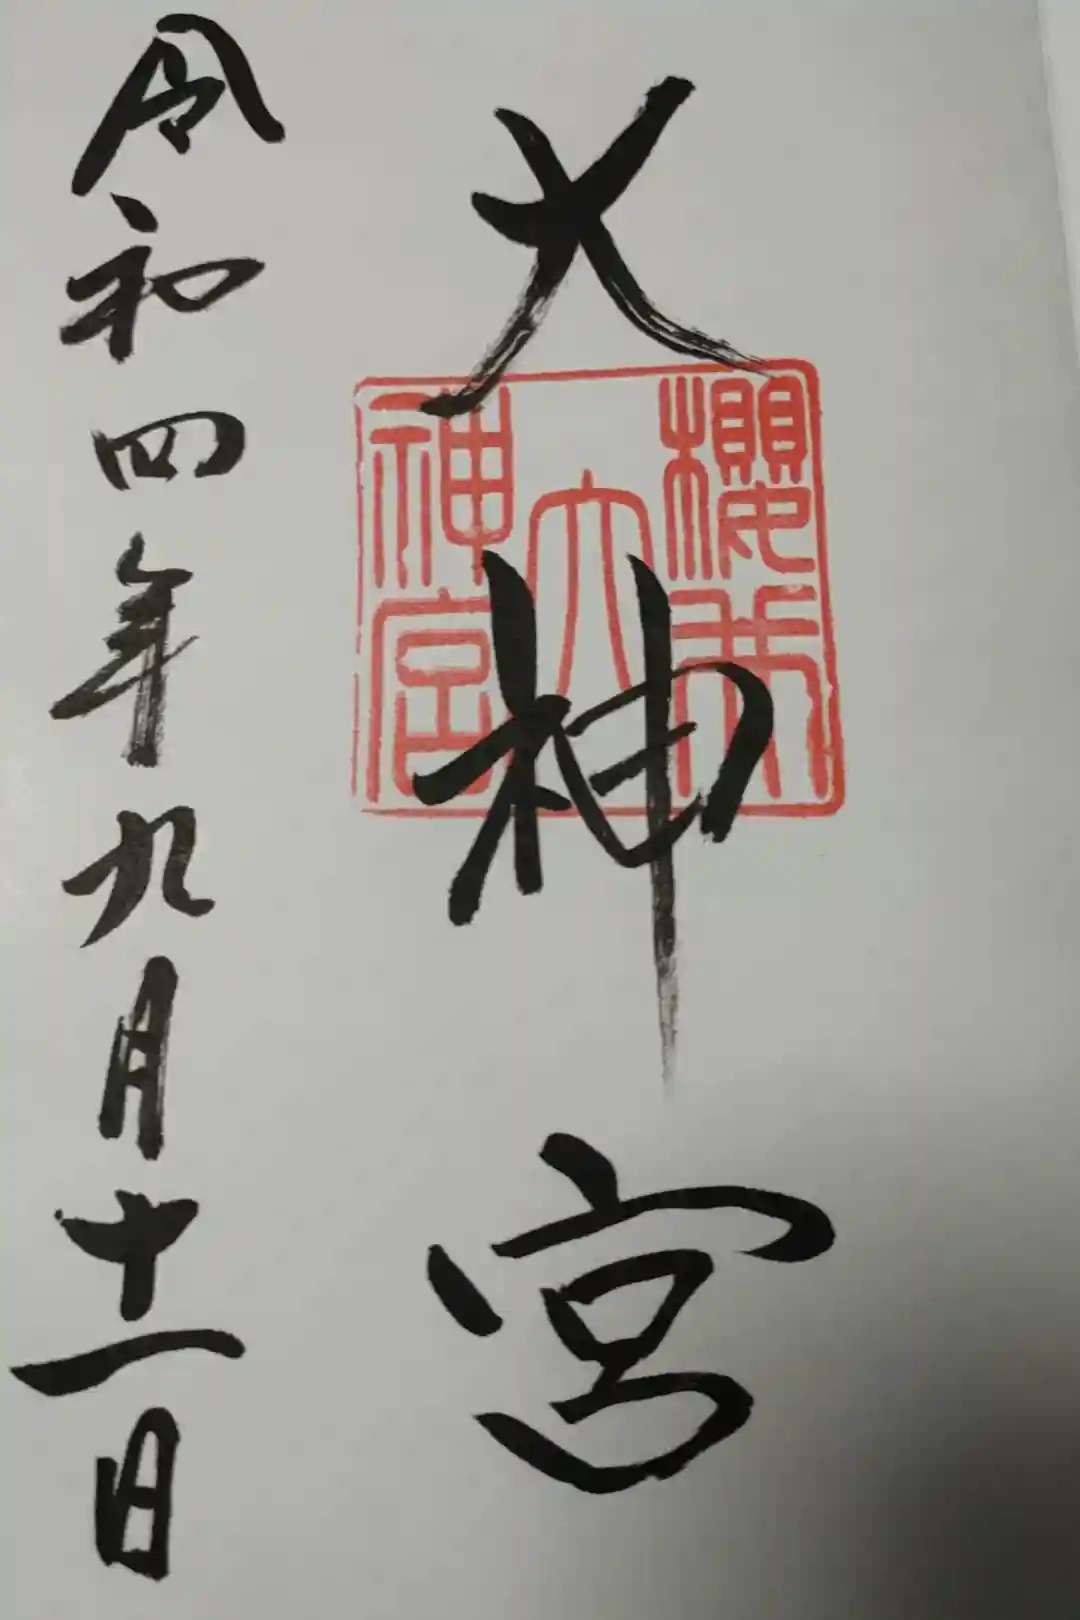 大神宮
櫻井
大
神宮
令和四年九月十一日